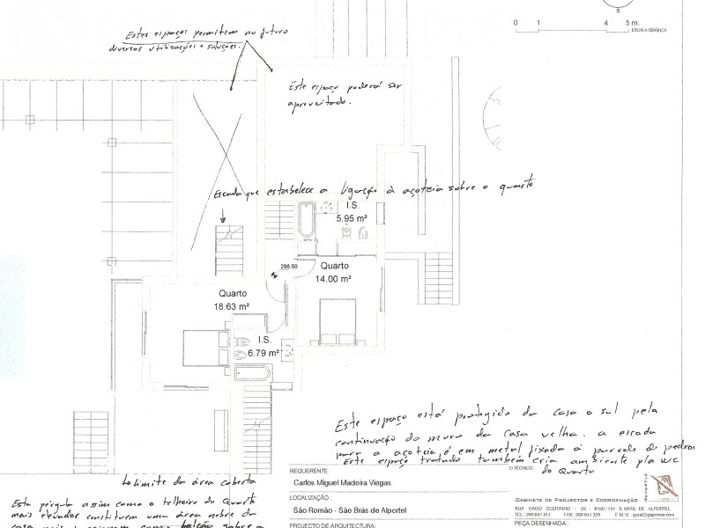 S
0 1 4 5 m.
ESCALA GRÁFICA
Estes espaços permitem no futuro
diversas utilizações e soluções.
Este espaço poderá ser
aproveitado.
Escada que estabelece a ligação à açoteia sobre o quarto
I.S.
5.95 m²
298.50
Quarto
14.00 m²
Quarto
18.63 m²
I.S.
6.79 m²
Este espaço está protegido da casa a sul pela
continuação do muro da casa velha. a escada
para a açoteia é em metal fixada à parede de pedra
Este espaço tratado também cria ambiente p/a WC
do Quarto
limite da área coberta
Esta pérgula assim como o telheiro do Quarto
mais elevados constituem uma área nobre da
sobre a
REQUERENTE:
Carlos Miguel Madeira Viegas
LOCALIZAÇÃO :
São Romão - São Brás de Alportel
PROJECTO DE ARQUITECTURA:
O TÉCNICO:
GABINETE DE PROJECTOS E COORDENAÇÃO
PEÇA DESENHADA :